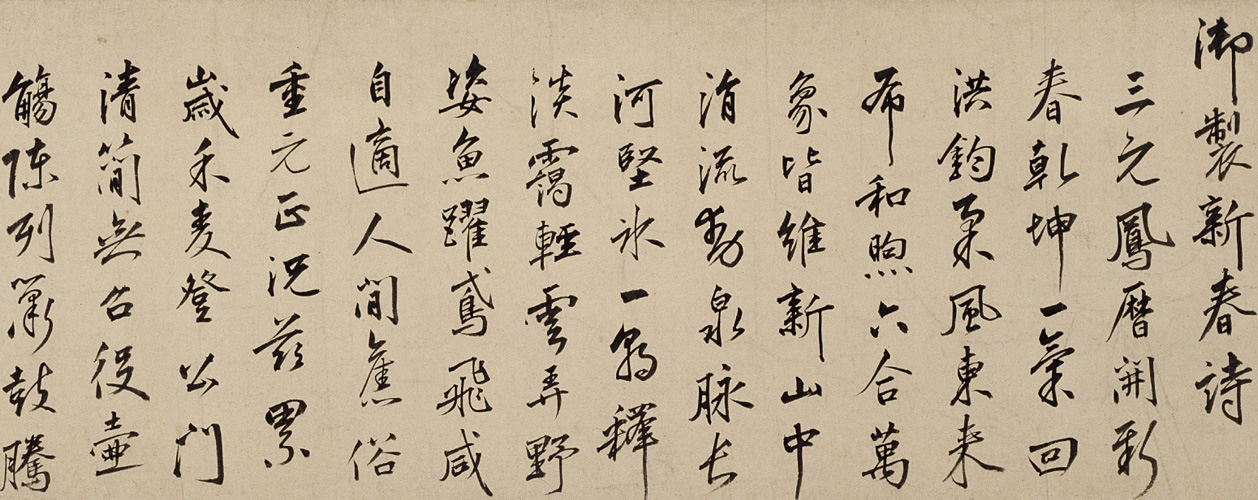 御製新春詩
三元鳳曆開新
春乾坤一氣回
洪鈞柔風東來
布和煦六合萬
象皆維新山中
涓流動泉脉長
河堅氷一朝釋
淡靄輕雲弄野
姿魚躍鳶飛咸
自適人間舊俗
重元正況茲累
歲禾麦登公門
清簡無召役壷
觴陳列簫鼓騰